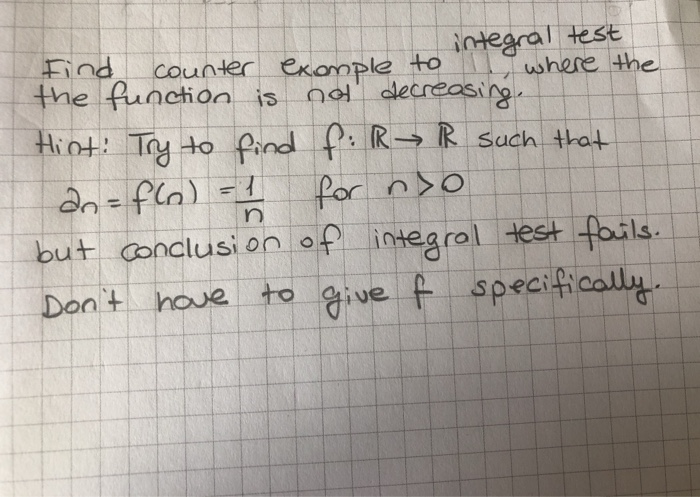 integral test
Find counter example to , where the
the function is not decreasing.
Hint: Try to find f: ℝ → ℝ such that
an = f(n) = 1/n for n>0
but conclusion of integral test fails.
Don't have to give f specifically.